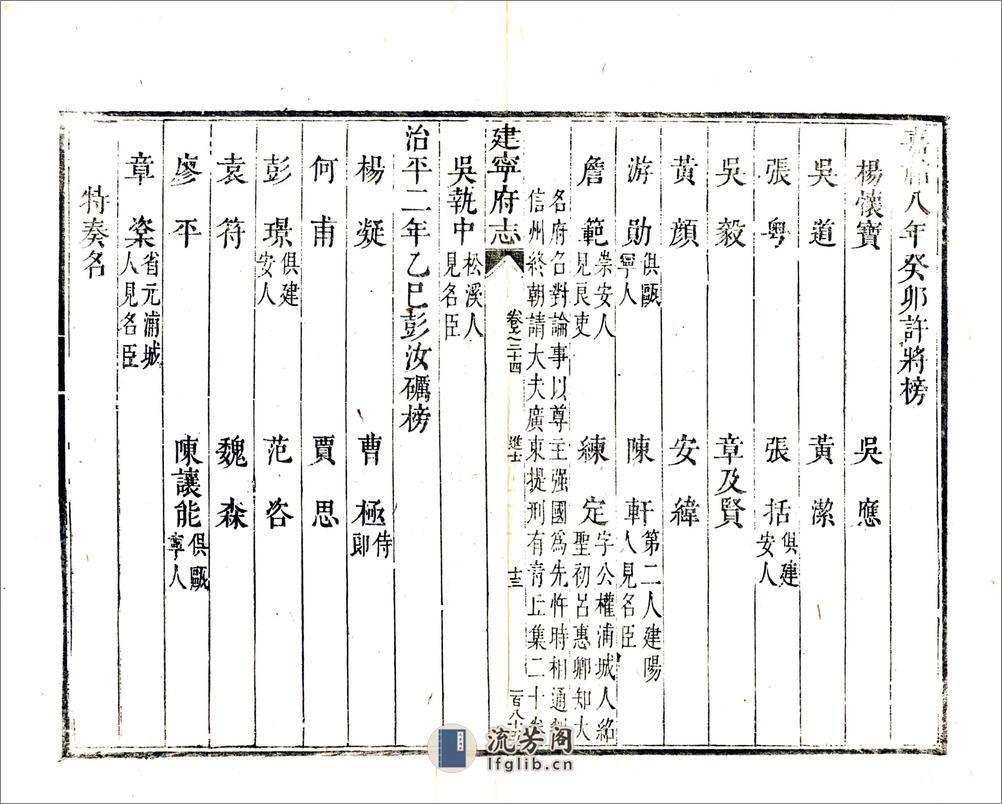 嘉祐八年癸卯許將榜
楊懷寶 吳應
吳道 黃潔
張粤 張括俱建安人
吳毅 章及賢
黃顏 安緯
游勛俱甌寧人 陳軒第二人建陽人見名臣
詹範崇安人見良吏 練定字公權浦城人紹聖初呂惠卿知大
名府召對論事以尊主强國爲先忤時相通判
信州終朝請大夫廣東提刑有青丘集二十卷
建寧府志 卷之二十四 進士 十三
吳執中松溪人見名臣
治平二年乙巳彭汝礪榜
楊凝 曹極侍郎
何甫 賈思
彭璟俱建安人 范咨
袁符 魏森
廖平 陳讓能俱甌寧人
章楶省元浦城人見名臣
特奏名
流芳阁
lfglib.cn